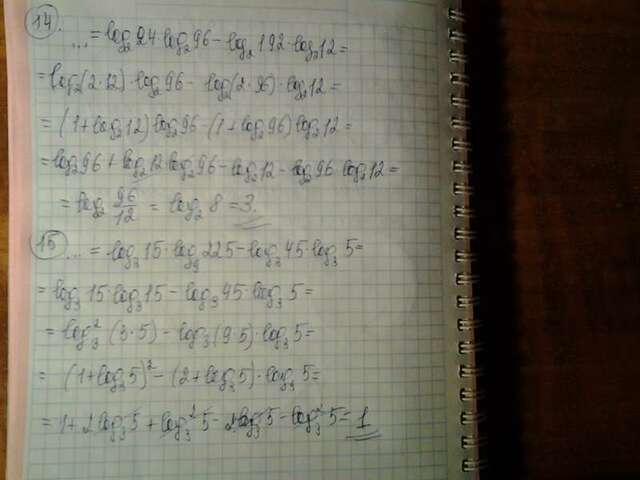 14.
... = log₂24·log₂96 - log₂192·log₂12 =
= log₂(2·12)·log₂96 - log₂(2·96)·log₂12 =
= (1+log₂12)log₂96 - (1+log₂96)log₂12 =
= log₂96 + log₂12 log₂96 - log₂12 - log₂96 log₂12 =
= log₂ 96/12 = log₂ 8 = 3.
15
... = log₃15·log₉225 - log₃45·log₃5 =
= log₃15·log₃15 - log₃45·log₃5 =
= log₃²(3·5) - log₃(9·5)·log₃5 =
= (1+log₃5)² - (2+log₃5)·log₃5 =
= 1+2log₃5 + log₃²5 - 2log₃5 - log₃²5 = 1